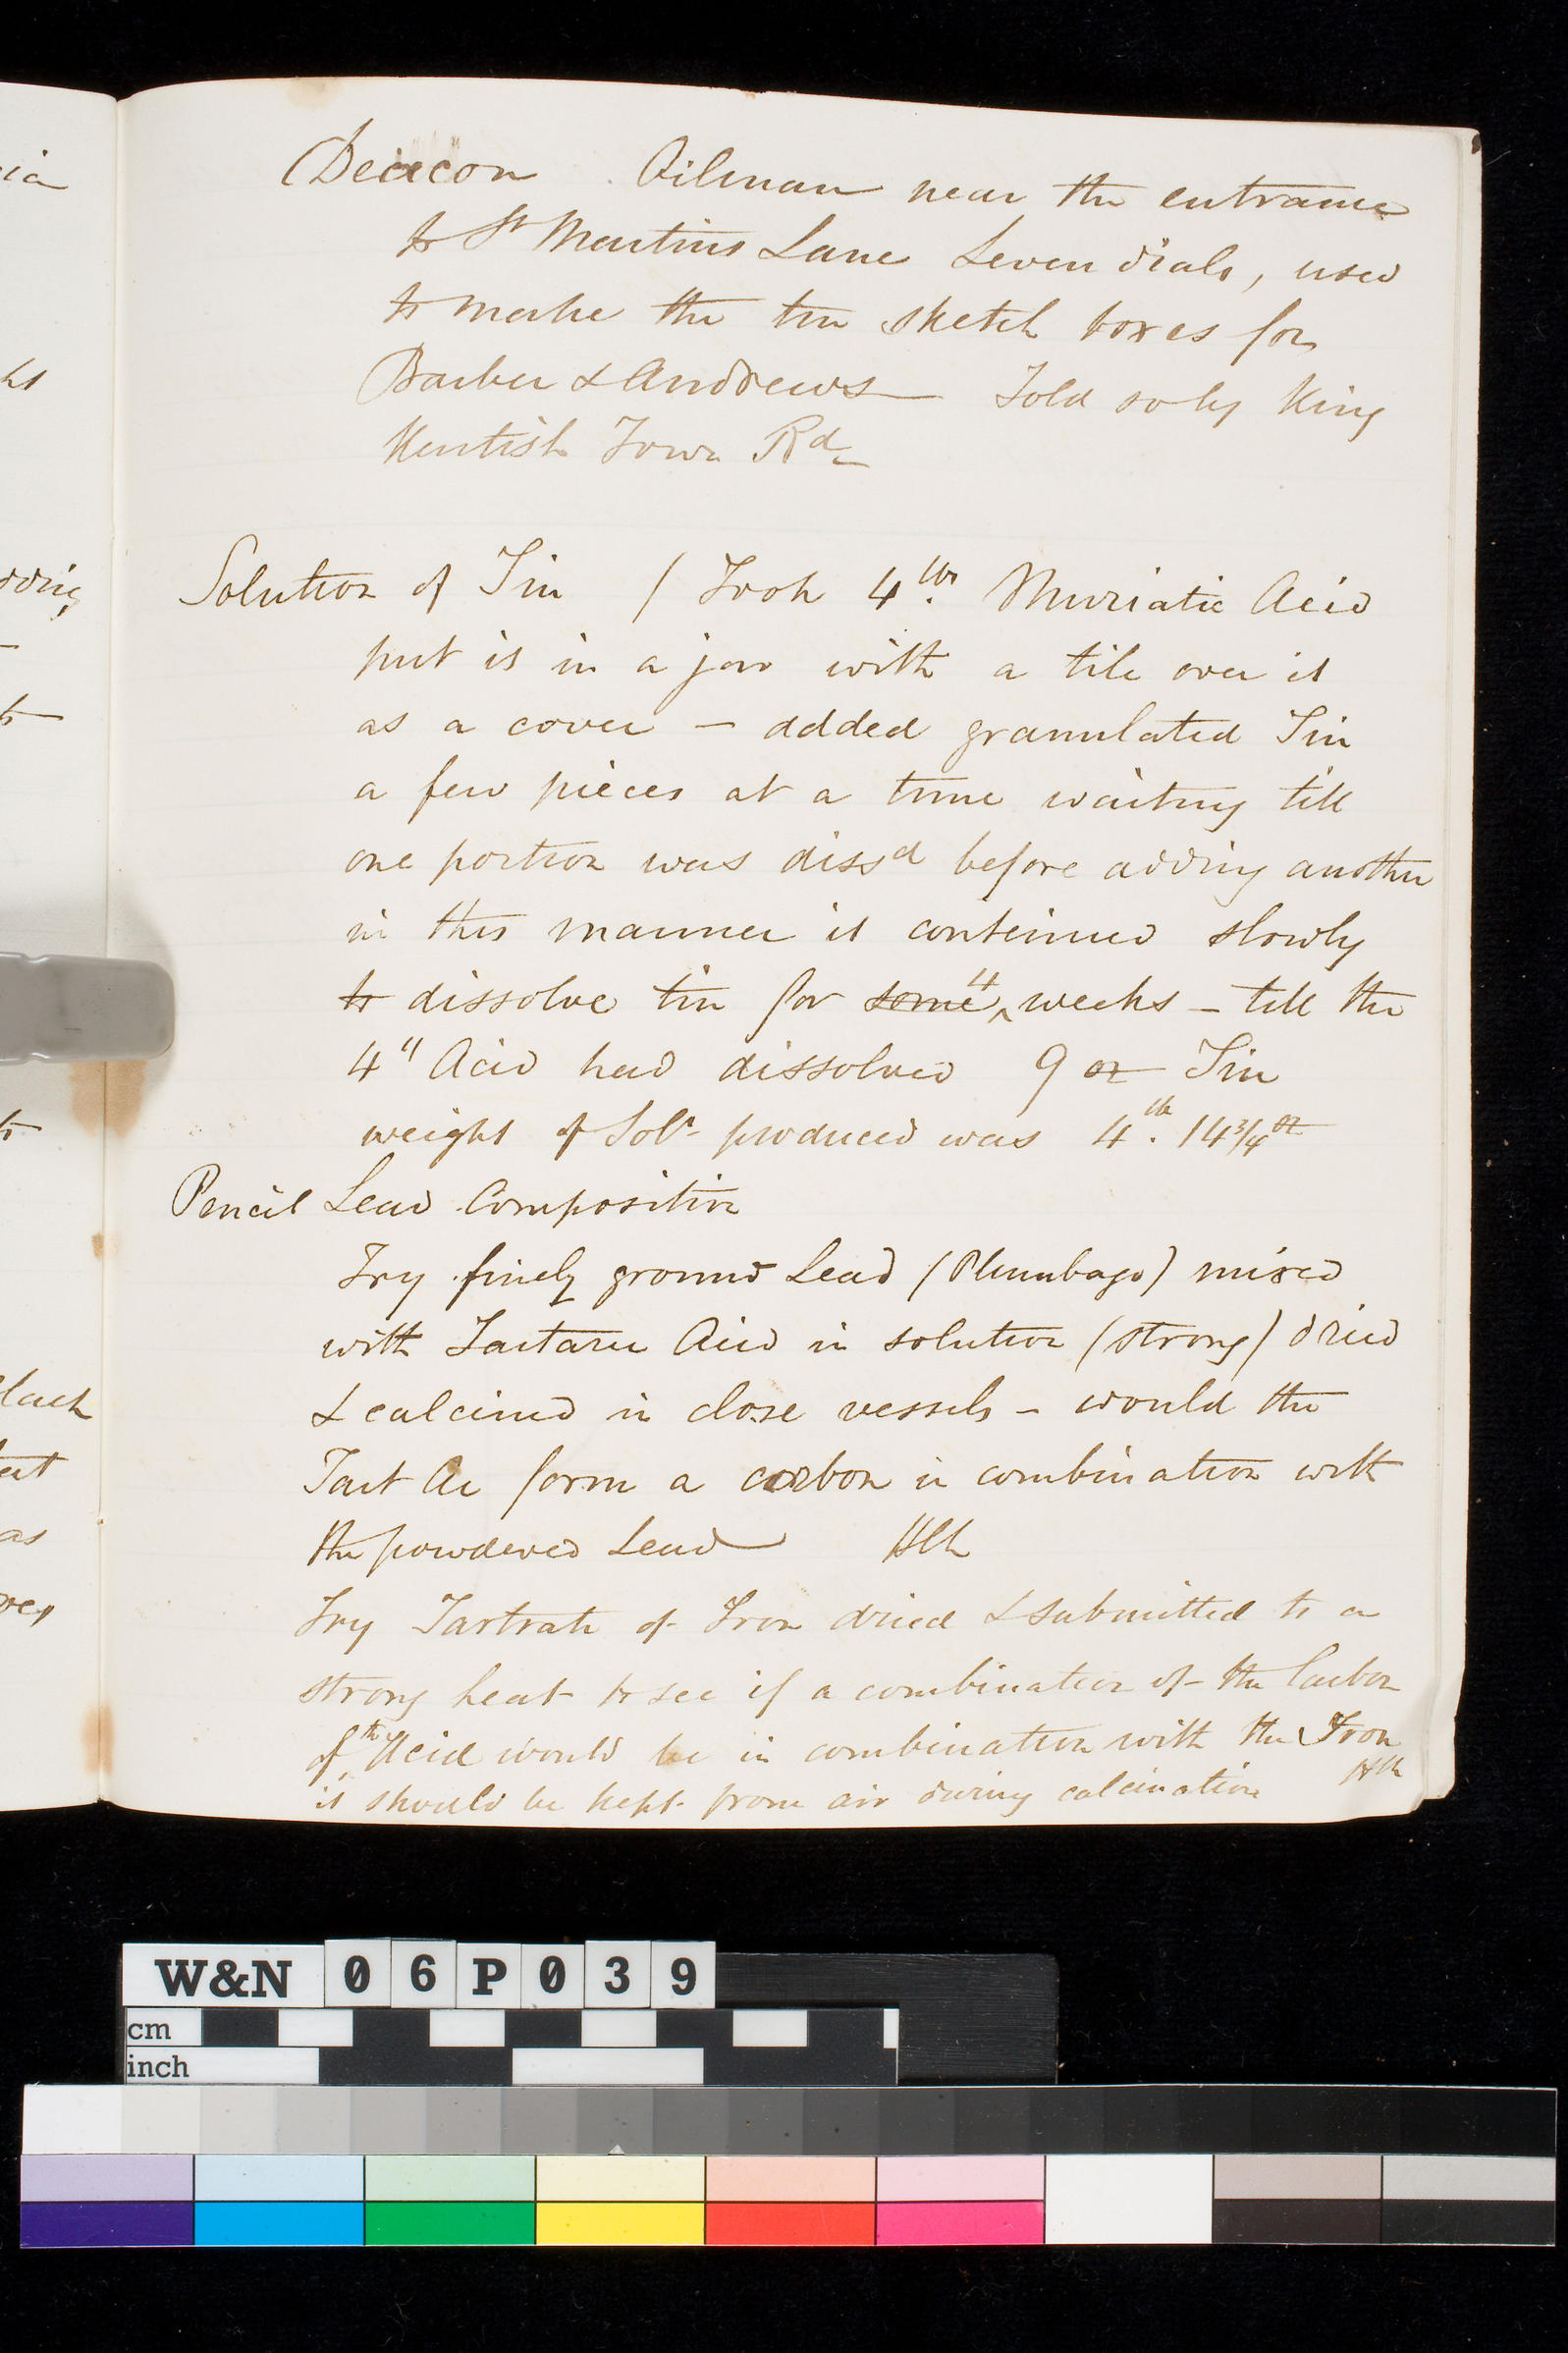 ia
ht
dding
to
to
lack
as
over
Deacon Oilman near the entrance
to St Martins Lane Seven dials, used
to make the tin sketch boxes for
Barber & Andrews Told so by King
Kentish Town Rd
Solution of Tin / Took 4 lbs. Muriatic Acid
put is in a jar with a tile over it
as a cover – added granulated Tin
a few pieces at a time waiting till
one portion was dissd before adding another
in this manner it continued slowly
to dissolve tin for some 4 weeks – till the
4" Acid had dissolved 9 oz Tin
weight of Soln produced was 4 lb. 14 3/4 oz
Pencil Lead Composition
Try finely ground Lead (Plumbago) mixed
with Tartaric Acid in solution (strong) dried
& calcined in close vessels – would the
Tart Ac form a carbon in combination with
the powdered Lead
Try Tartrate of Iron dried & submitted to a
strong heat to see if a combination of the Carbon
of the Acid would be in combination with the Iron
it should be kept from air during calcination
W&N 06P039
cm
inch